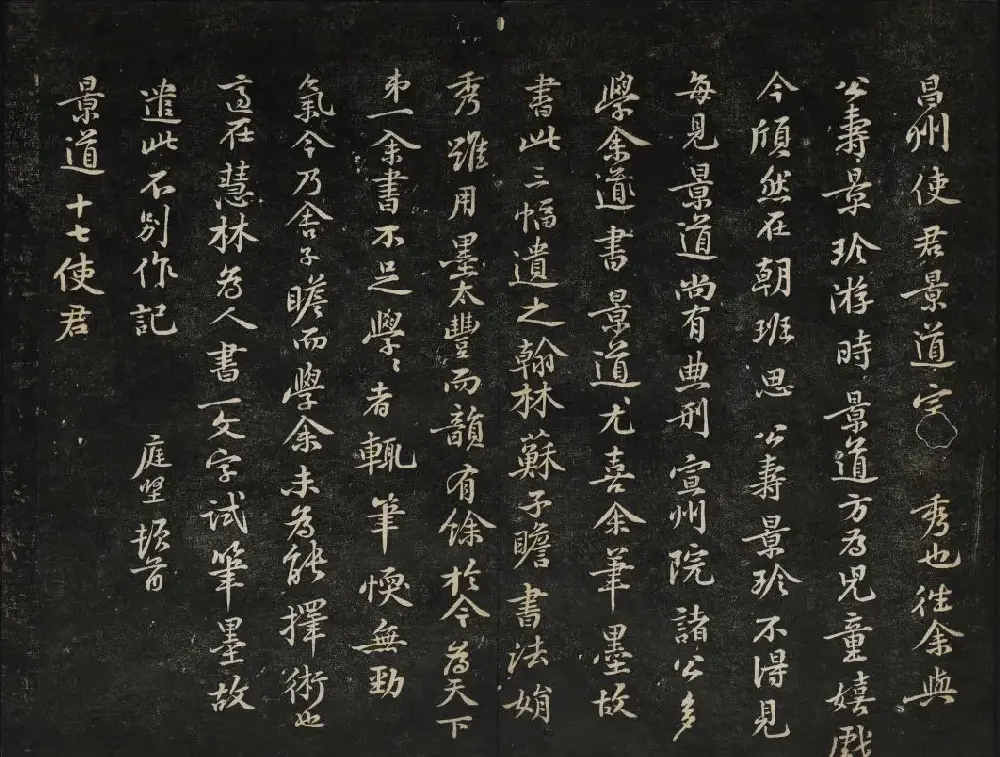 昌州使君景道宗秀也往余與
公壽景珍游時景道方為児童嬉戲
今頎然在朝班思公壽景珍不得見
每見景道尚有典刑宣州院諸公多
學余道書景道尤喜余筆墨故
書此三幅遺之翰林蘇子瞻書法娟
秀雖用墨太豐而韻有餘於今為天下
弟一余書不足學學者輒筆愞無勁
氣今乃舍子瞻而學余未為能擇術也
適在慧林為人書一文字試筆墨故
遣此不別作記
庭坚頓首
景道十七使君